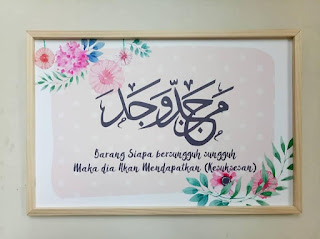 مَنْ جَدَّ وَجَدَ
Barang Siapa bersungguh sungguh
Maka dia Akan Mendapatkan (Kesuksesan)